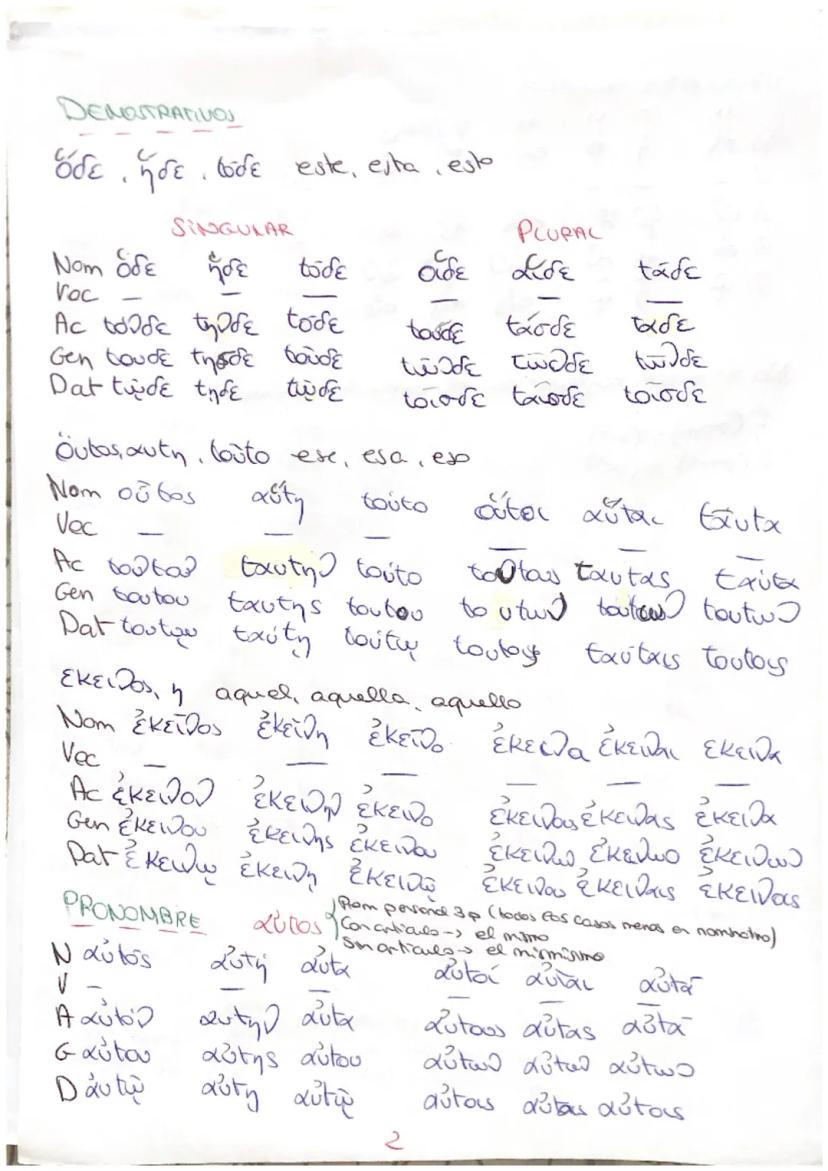 DEMOSTRATIVOS
ὅδε, ἥδε, τόδε este, esta, esto
SINGULAR PLURAL
Nom ὅδε ἥδε τόδε οἵδε αἵδε τάδε
Voc — — — — — —
Ac τονδε τηνδε τοδε τουσδε τάσδε ταδε
Gen τουδε τησδε τούδε τῶνδε τῶνδε τῶνδε
Dat τῳδε τηδε τῳδε τοῖσδε ταῖσδε τοῖσδε
Ὅυτος, αυτη, τοῦτο ese, esa, eso
Nom οὗτος αὕτη τούτο οὕτοι αὕται ταῦτα
Voc — — — — — —
Ac τοῦτον ταυτην τούτο τούτους ταυτας ταύτα
Gen τουτου ταυτης τουτου τουτων τουτων τουτων
Dat τουτῳ ταύτῃ τούτῳ τουτοις ταύταις τουτοις
εκεινος, η aquel, aquella, aquello
Nom ἐκεῖνος ἐκείνη ἐκεῖνο ἐκεινα ἐκειναι εκεινα
Voc — — — — — —
Ac ἐκεινον ἐκεινην ἐκεινο ἐκεινους ἐκεινας ἐκεινα
Gen ἐκεινου ἐκεινης ἐκεινου ἐκεινω ἐκεινωο ἐκεινων
Dat ἐκεινῳ ἐκεινη ἐκεινῳ ἐκεινου ἐκειναις ἐκεινας
PRONOMBRE αὐτος Pron personal 3p (todos los casos menos en nominativo)
Con articulo → el mismo
Sin articulo → el mismísimo
N αὐτός αὐτή αὐτα αὐτοί αὐταί αὐτα
V — — — — — —
A αὐτόν αυτην αὐτα αὐτους αὐτας αὐτα
G αὐτου αὐτης αὐτου αὐτων αὐτων αὐτων
D ἀυτῳ αὐτη αὐτῳ αὐτοις αὐταις αὐτοις
2